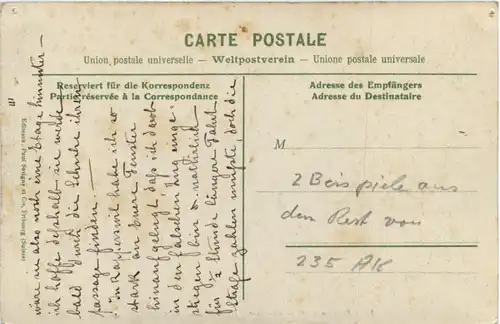 CARTE POSTALE
Union postale universelle — Weltpostverein — Unione postale universale
Reserviert für die Korrespondenz
Partie réservée à la Correspondance
Adresse des Empfängers
Adresse du Destinataire
M
2 Beispiele aus
dem Rest von
235 AK
wäre sie also noch eine Etage hinunter-
ich hoffe deshalb sie werde
bald durch die Schuhe ihren
passage finden. —
In Rapperswil habe ich so
stark an Eure Fenster
hinaufgelugt daß ich darob
in den falschen Zug einge-
stiegen bin u. natürlich
für ½ Stunde längere Fahrt
Strafe zahlen mußte, doch die